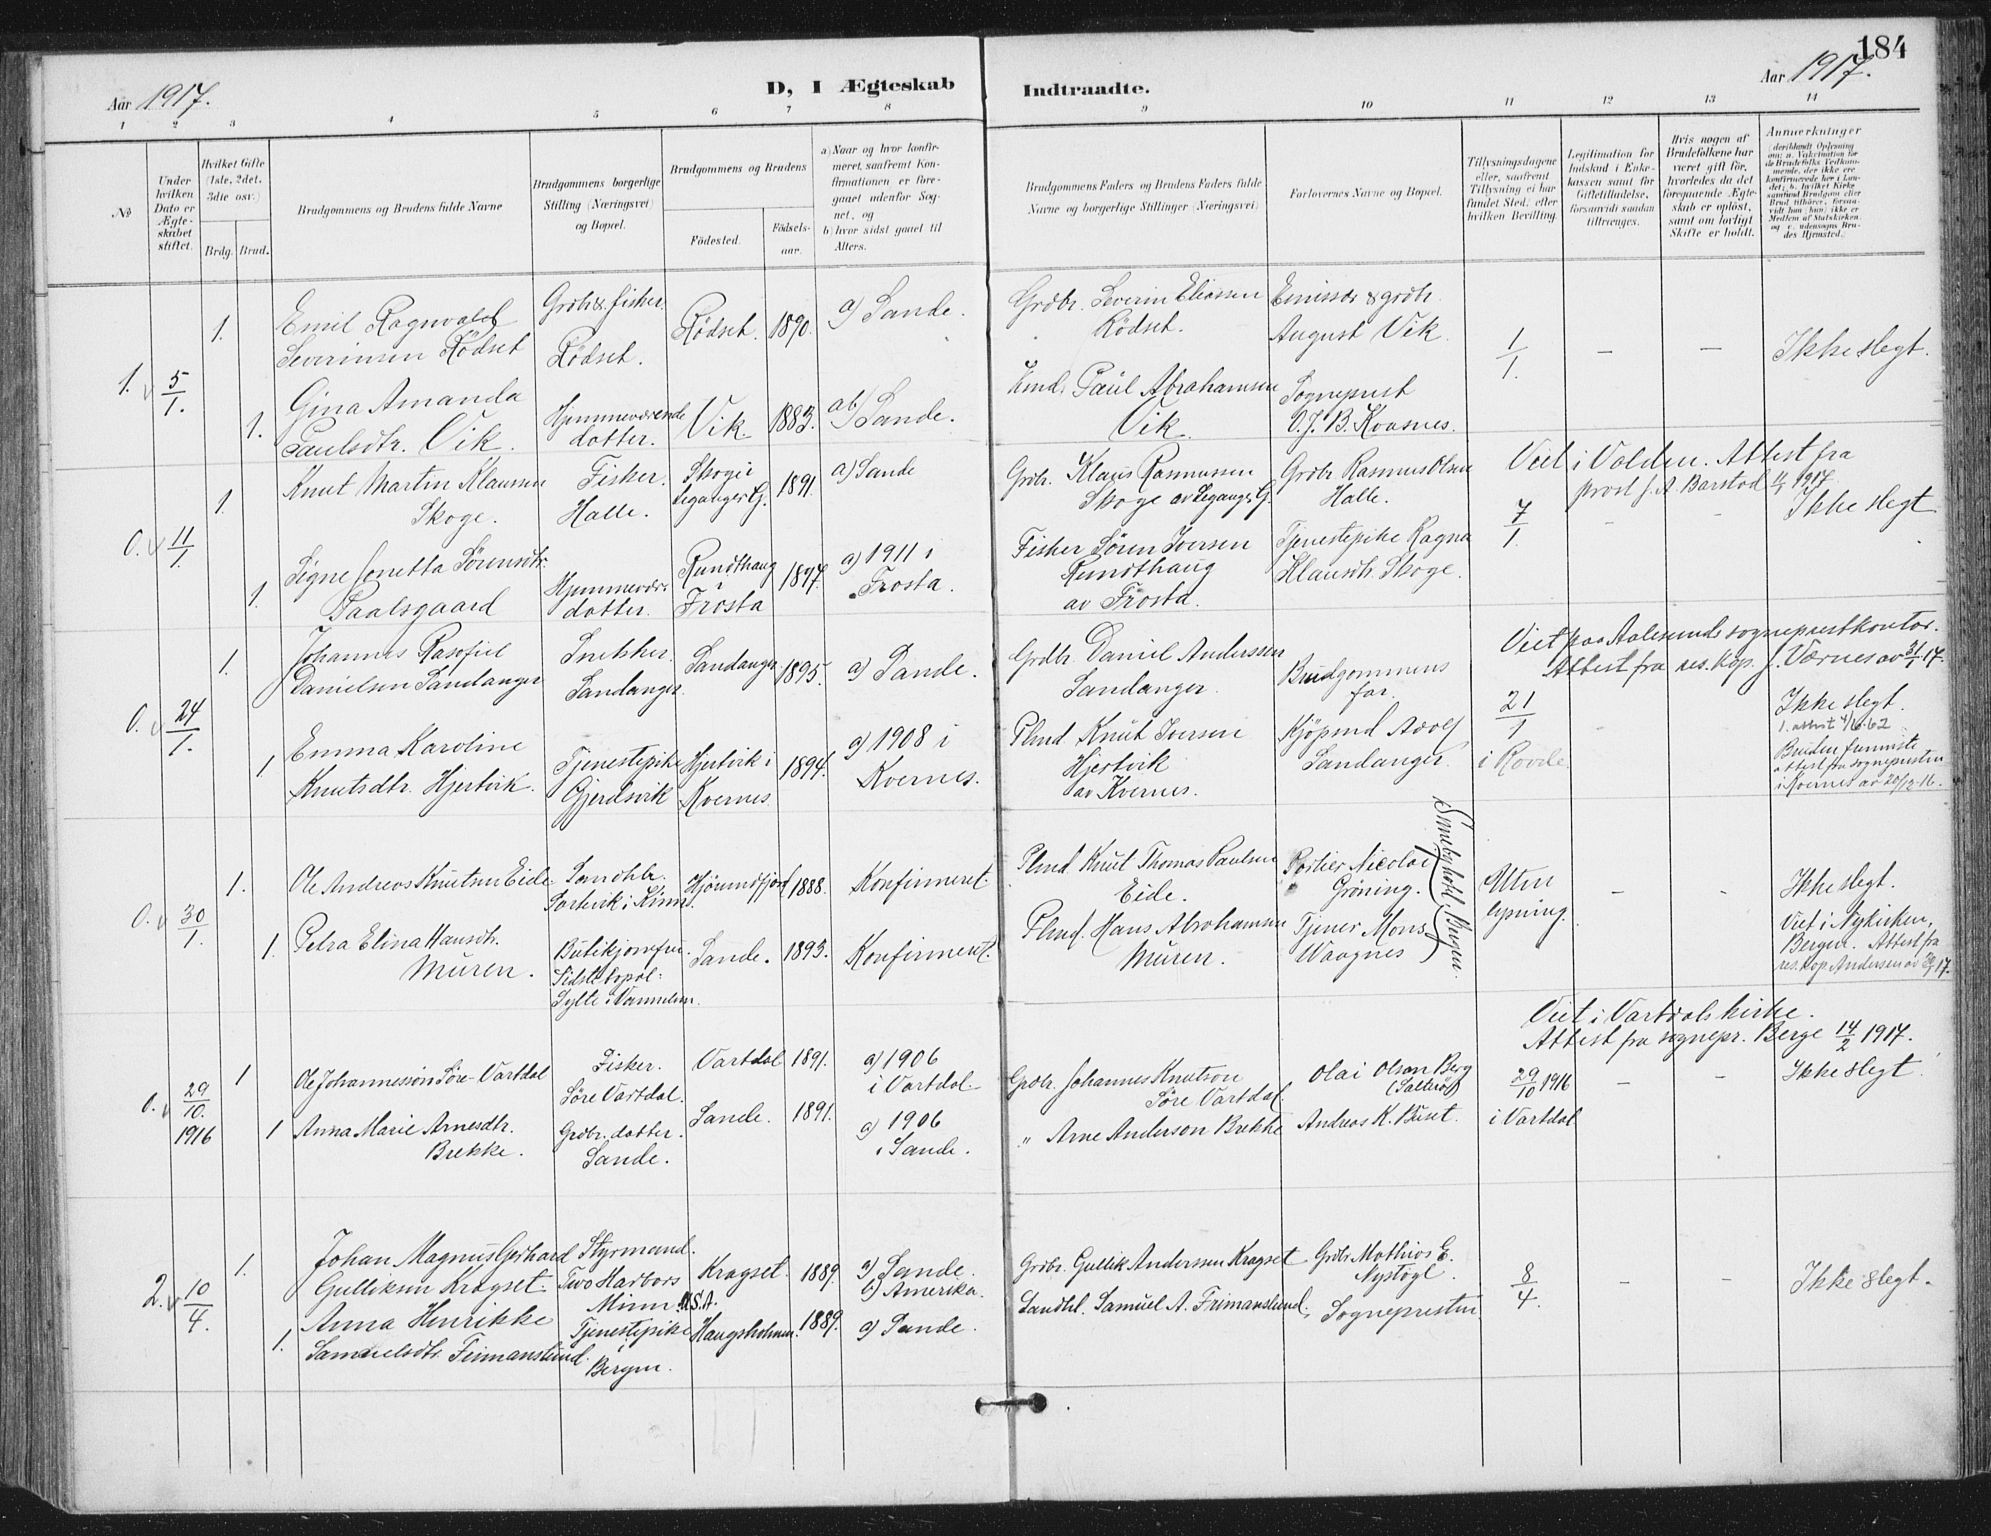 184
Aar 1917.
D, I Ægteskab
Indtraadte.
Aar 1917.
1 2 3 4 5 6 7 8
9 10 11 12 13 14
No
Under hvilken Dato er Ægteskabet stiftet.
Hvilket Gifte (1ste, 2det, 3die osv.)
Brdg. Brud.
Brudgommens og Brudens fulde Navne
Brudgommens borgerlige Stilling (Næringsvei) og Bopæl.
Brudgommens og Brudens
Födested.
Födselsaar.
a) Naar og hvor konfirmeret, saafremt Konfirmationen er foregaaet udenfor Sognet, og
b) hvor sidst gaaet til Alters.
Brudgommens Faders og Brudens Faders fulde Navne og borgerlige Stillinger (Næringsvei)
Forlovernes Navne og Bopæl.
Tillysningsdagene eller, saafremt Tillysning ei har fundet Sted, efter hvilken Bevilling.
Legitimation for Indskud i Enkekassen samt for Giftetilladelse, forsaavidt saadan tiltrænges.
Hvis nogen af Brudefolkene har været gift för, hvorledes da det foregaaende Ægteskab er oplöst, samt om lovligt Skifte er holdt.
Anmærkninger
1. 5/1.
1. Emil Ragnvald
Severinsen Rødset
Grdbr. & fisker.
Rødset.
Rødset. 1890. a) Sande.
Grdbr. Severin Eliassen
Rødset.
Emissær & grdbr.
August Vik.
1/1. — — Ikke slegt.
1. Gina Amanda
Paulsdtr. Vik.
Hjemmeværende
datter.
Vik. 1883. ab) Sande.
Paul Abrahamsen
Vik.
Sogneprest
O. J. B. Kvasnes.
0. 11/1.
1. Knut Martin Klausen
Skoge.
Fisker.
Halle.
Skoge i
Leganger G. 1891. a) Sande
Grdbr. Klaus Rasmussen
Skoge av Leganger G.
Grdbr. Rasmus Olsen
Halle.
Viet i Volden. Attest fra
prost J. A. Barstad 11/1 1917.
7/1. - - Ikke slegt
1. Signe Jonetta Sørensdtr.
Paalsgaard
Hjemmevær.
datter.
Rundthaug
i
Frosta 1897. a) 1911 i
Frosta.
Fisker Søren Iversen
Rundthaug
av Frosta.
Tjenestepike Ragna
Klausdtr. Skoge.
0. 24/1.
1. Johannes Rasofiel
Danielsen Sandanger
Snekker.
Sandanger.
Sandanger. 1895. a) Sande.
Grdbr. Daniel Anderssen
Sandanger.
Brudgommens
far.
Viet paa Aalesunds sogneprestkontor.
Attest fra res. kap. J. Værnes av 31/1.17.
21/1 i Rovde. - Ikke slegt.
1. attest 4/6.62
Bruden fremviste
attest fra sognepresten
i Kvernes av 20/12-16.
1. Emma Karoline
Knutsdtr. Hjertvik.
Tjenestepike
Gjerdsvik
Hjertvik i
Kvernes. 1894. a) 1908 i
Kvernes.
Plmd Knut Iversen
Hjertvik
av Kvernes.
Kjøpmd Adolf
Sandanger.
0. 30/1.
1. Ole Andreas Knutsen Eide.
Hjørundfjord 1888. Konfirmeret.
Plmd. Knut Thomas Paulsen
Eide.
Portier Nicolai
Grøning.
Uten
lysning. - - Ikke slegt.
Viet i Nykirken,
Bergen. Attest fra
res. kap. Andersen av 30/1 17.
1. Petra Elina Hansdtr.
Muren.
Butikjomfru.
Sidste bopæl:
Sylte i Vannelven.
Sande. 1893. Konfirmeret.
Plmd. Hans Abrahamsen
Muren.
Tjener Mons
Waagnes
Bergen.
0. 29/10. 1916
1 Ole Johannessøn Søre-Vartdal
Fisker.
Søre Vartdal.
Vartdal 1891. a) 1906
i Vartdal.
Grdbr. Johannes Knutson
Søre Vartdal.
Olai Olson Berg
Viet i Vartdals kirke.
Attest fra sognepr. Berge 14/2 1917.
29/10 1916
i Vartdal - - Ikke slegt
1 Anna Marie Arnesdtr.
Brekke.
Grdbr. datter.
Sande.
Sande. 1891. a) 1906
i Sande.
" Arne Anderson Brekke
Andreas K. Buset.
2. 10/4.
1. Johan Magnus Gerhard
Gulliksen Kragset.
Styrmand.
Two Harbors
Minn. U.S.A.
Kragset. 1889. a) Sande.
b) Amerika.
Grdbr. Gullik Anderssen Kragset
Grdbr Mathias E.
Nystøyl.
8/4. - - Ikke slegt.
1. Anna Henrikke
Samuelsdtr. Frimanslund.
Tjenestepike
i
Bergen.
Haugsholmen. 1889. a) Sande.
Landhl. Samuel A. Frimanslund.
Sognepresten